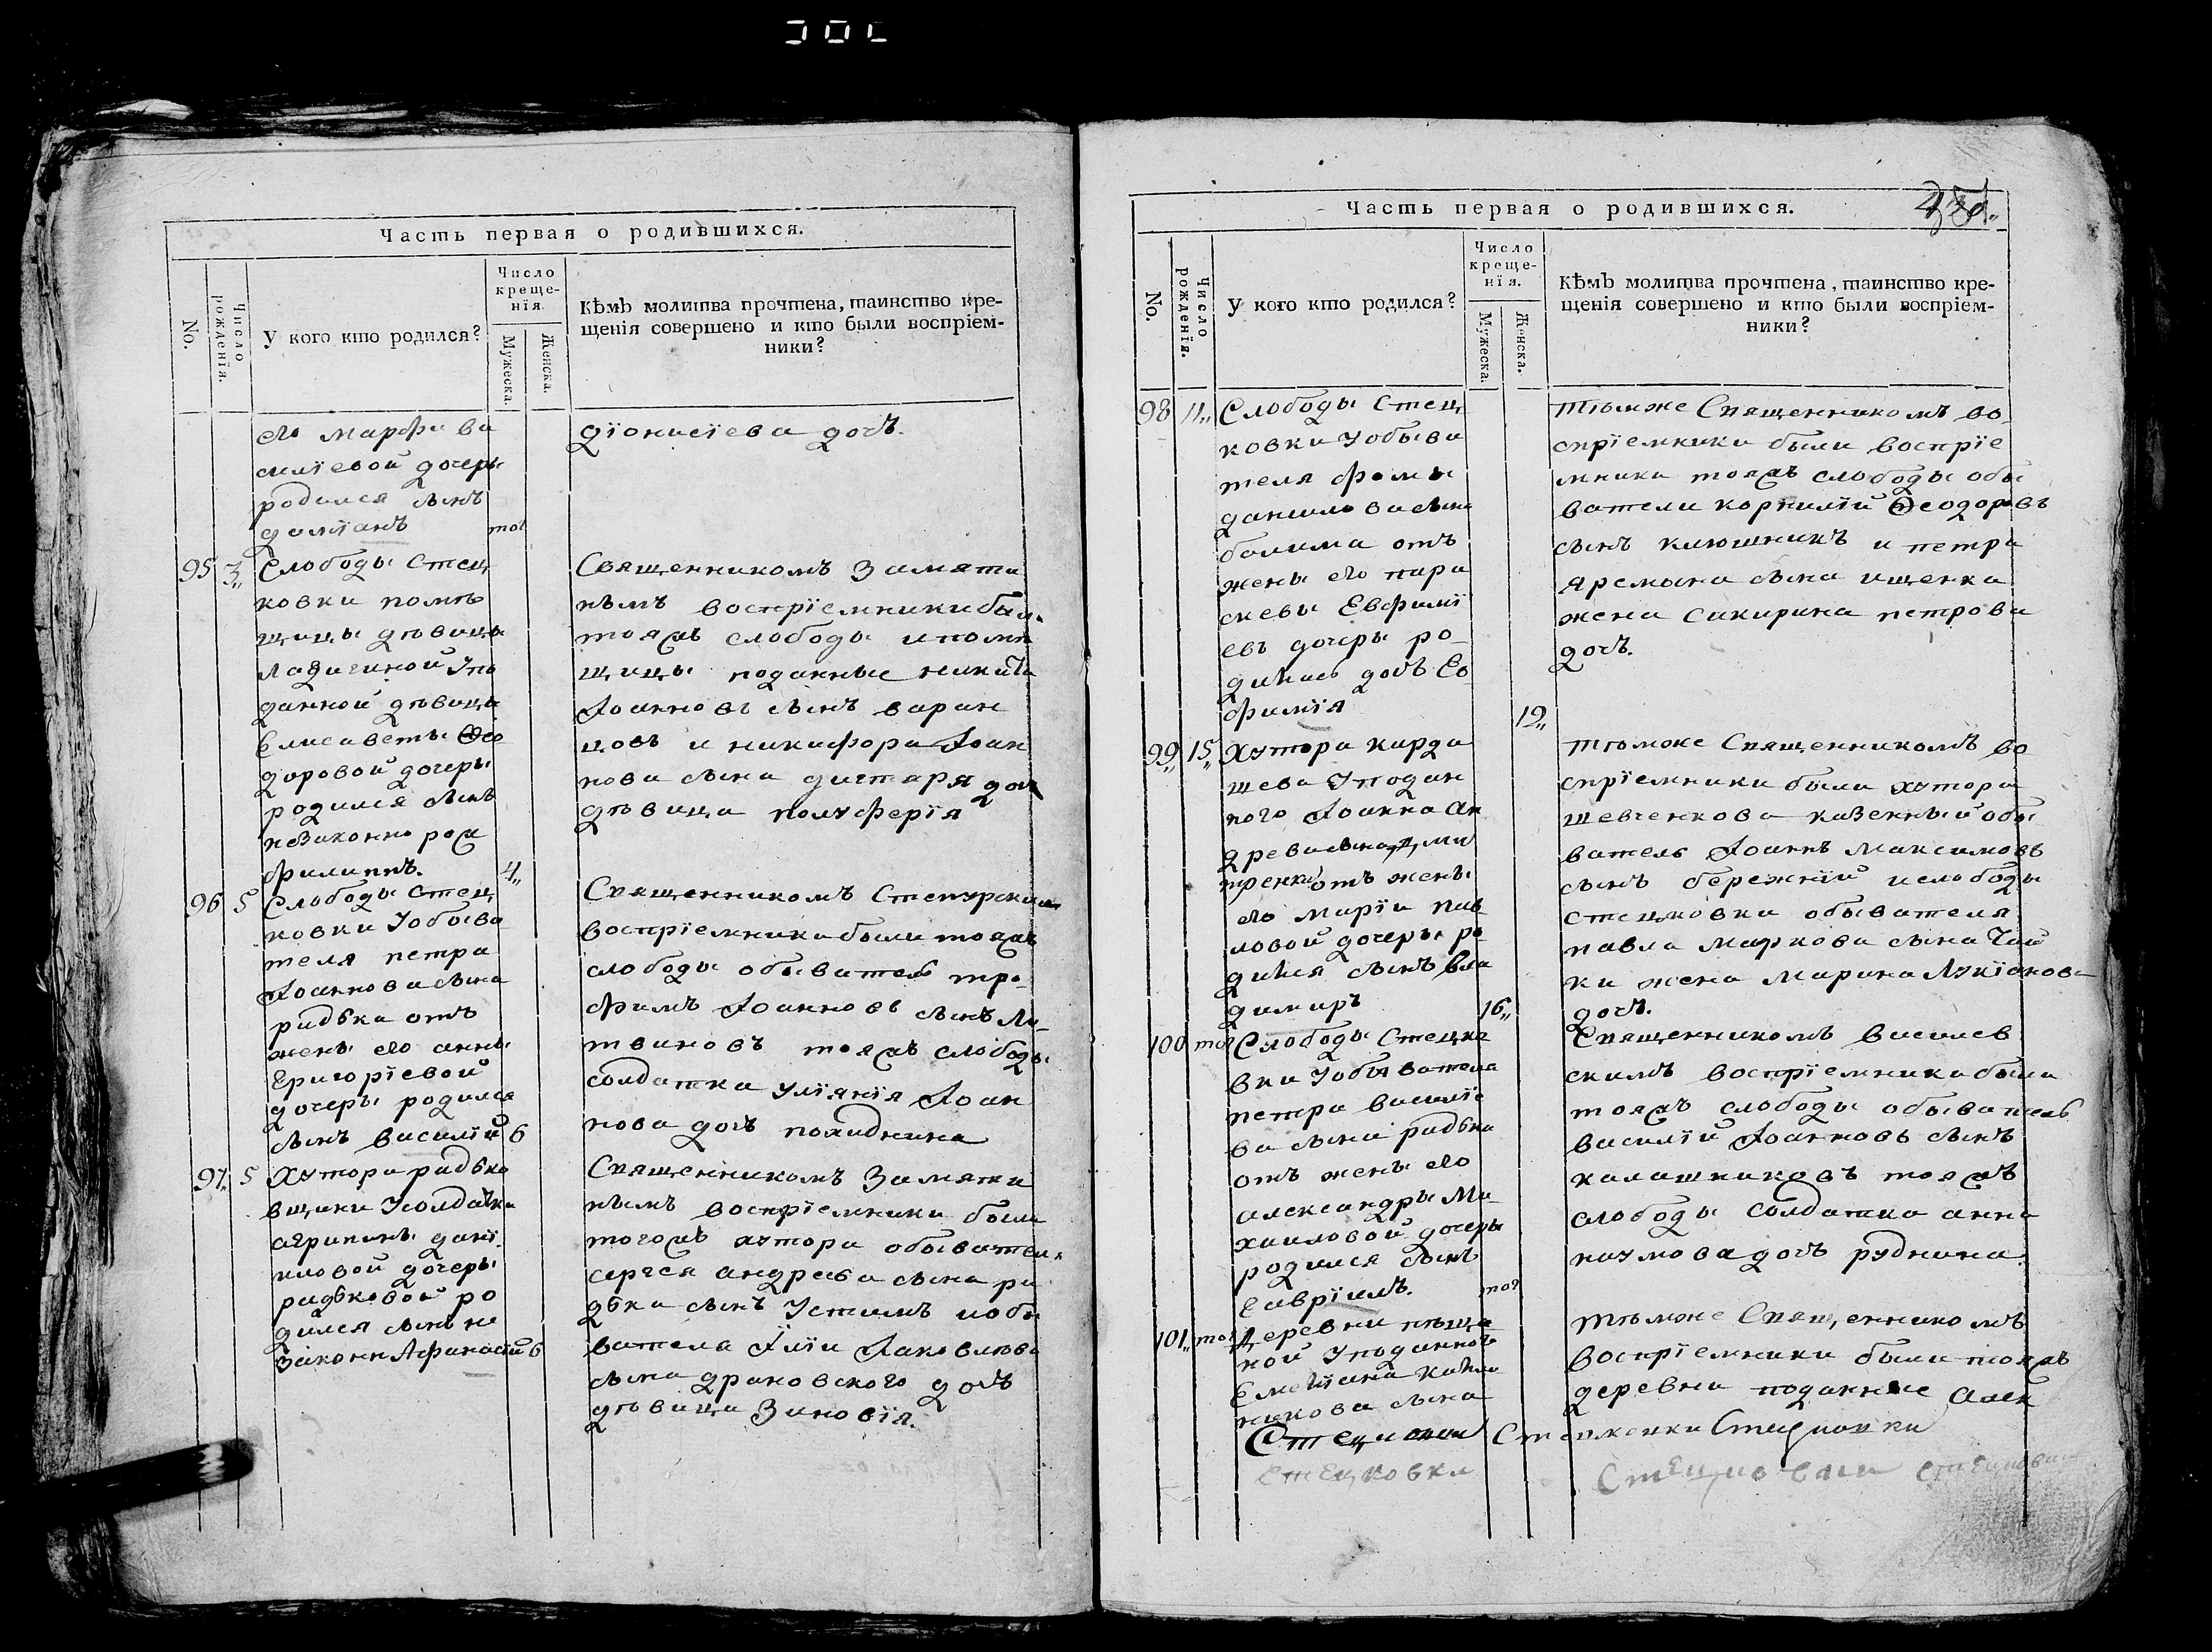 Часть первая о родившихся.
No.
Число рожденїя.
У кого кто родился?
Число
креще-
нїя.
Мужеска.
Женска.
Кѣмъ молитва прочтена, таинство кре-
щенїя совершено и кто были воспрїем-
ники?
его марфи ва
силїевой дочеры
родился сынъ
дамїанъ тог
дїонисїева дочъ.
95 3„ Слободы Стец
ковки помѣ
щицы дѣвицы
Ладигиной Упо
данной дѣвицы
Елисаветы Ѳео
доровой дочеры
родился сынъ
незаконно рож
филиппъ. 4„
Священникомъ Замяти
нымъ воспрїемники были
тояжъ слободы и помѣ
щицы поданные никита
Іоанновъ сынъ варан
цовъ и никифора Іоан
нова сына дигтаря доч
дѣвица полуферїя
96 5 Слободы Стец
ковки Уобыва
теля петра
Іоаннова сына
радька отъ
жены его анны
Григорїевой
дочеры родился
сынъ василїй 6
Священникомъ
воспрїемники были тояжъ
слободы обыватель тро-
фимъ Іоанновъ сынъ Ли-
твиновъ тояжъ слободы
солдатка Улїянїя Іоан
нова дочъ
97„ 5 Хутора радько
вщини Усолдатки
агрипины данї
иловой дочеры
радьковой ро
дился сынъ не
законн Афанасїй 6
Священникомъ Замяти
нымъ воспрїемники были
тогожъ хутора обывателя
сергея андреева сына ра
дька сынъ Устимъ и обы
вателя Іліи Іаковлева
сына драновского дочъ
дѣвица Зиновїя.
Часть первая о родившихся.
No.
Число рожденїя.
У кого кто родился?
Число
креще-
нїя.
Мужеска.
Женска.
Кѣмъ молитва прочтена, таинство кре-
щенїя совершено и кто были воспрїем-
ники?
98 11„ Слободы Стец
ковки Уобыва
теля фомы
данилова сына
отъ
жены его пара
скевы Евфимї
евъ дочеры ро-
дилась дочъ Ев-
фимїя 12„
тѣмже Священникомъ во-
спрїемники были воспрїе
мники тояжъ слободы обы
ватели корнилїй Ѳеодоровъ
сынъ ключникъ и петра
яремына сына ищенка
жена сикирина петрова
дочъ.
99„ 15„ Хутора карда
шева Уподан
ного Іоанна ан
древа сына дми
тренки отъ жены
его марїи пав
ловой дочеры ро
дился сынъ Вла
димиръ 16„
тѣмже Священникомъ во
спрїемники были хутора
шевченкова казенный обы
ватель Іоаннъ Максимовъ
сынъ бережнїй и слободы
стецковки обывателя
павла маркова сына Чай
ки жена марина Лукїанова
дочъ.
100 тог Слободы Стецко
вки Уобывателя
петра василїе
ва сына радька
отъ жены его
александры Ми-
хаиловой дочеры
родился сынъ
Гаврїилъ. тог
Священникомъ василев
скимъ воспрїемники были
тояжъ слободы обыватель
василїй Іоанновъ сынъ
калашниковъ тояжъ
слободы солдатка анна
наумова дочъ руднина.
101„ тог Деревни пѣща
ной Уподанного
Емелїана
сына
тѣмже Священникомъ
воспрїемники были тояжъ
деревни поданные алек
Стецковки